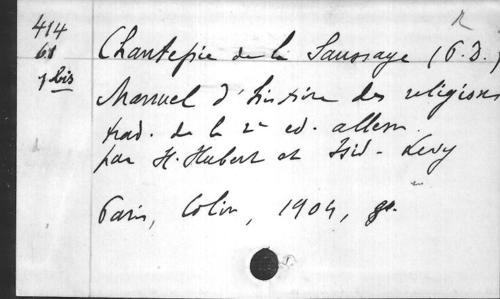 414
61
7 bis
Chantepie de la Saussaye (P. D.)
Manuel d'histoire des religions
trad. de la 2e ed. allem.
par H. Hubert et Isid. Levy
Paris, Colin, 1904, 8o.